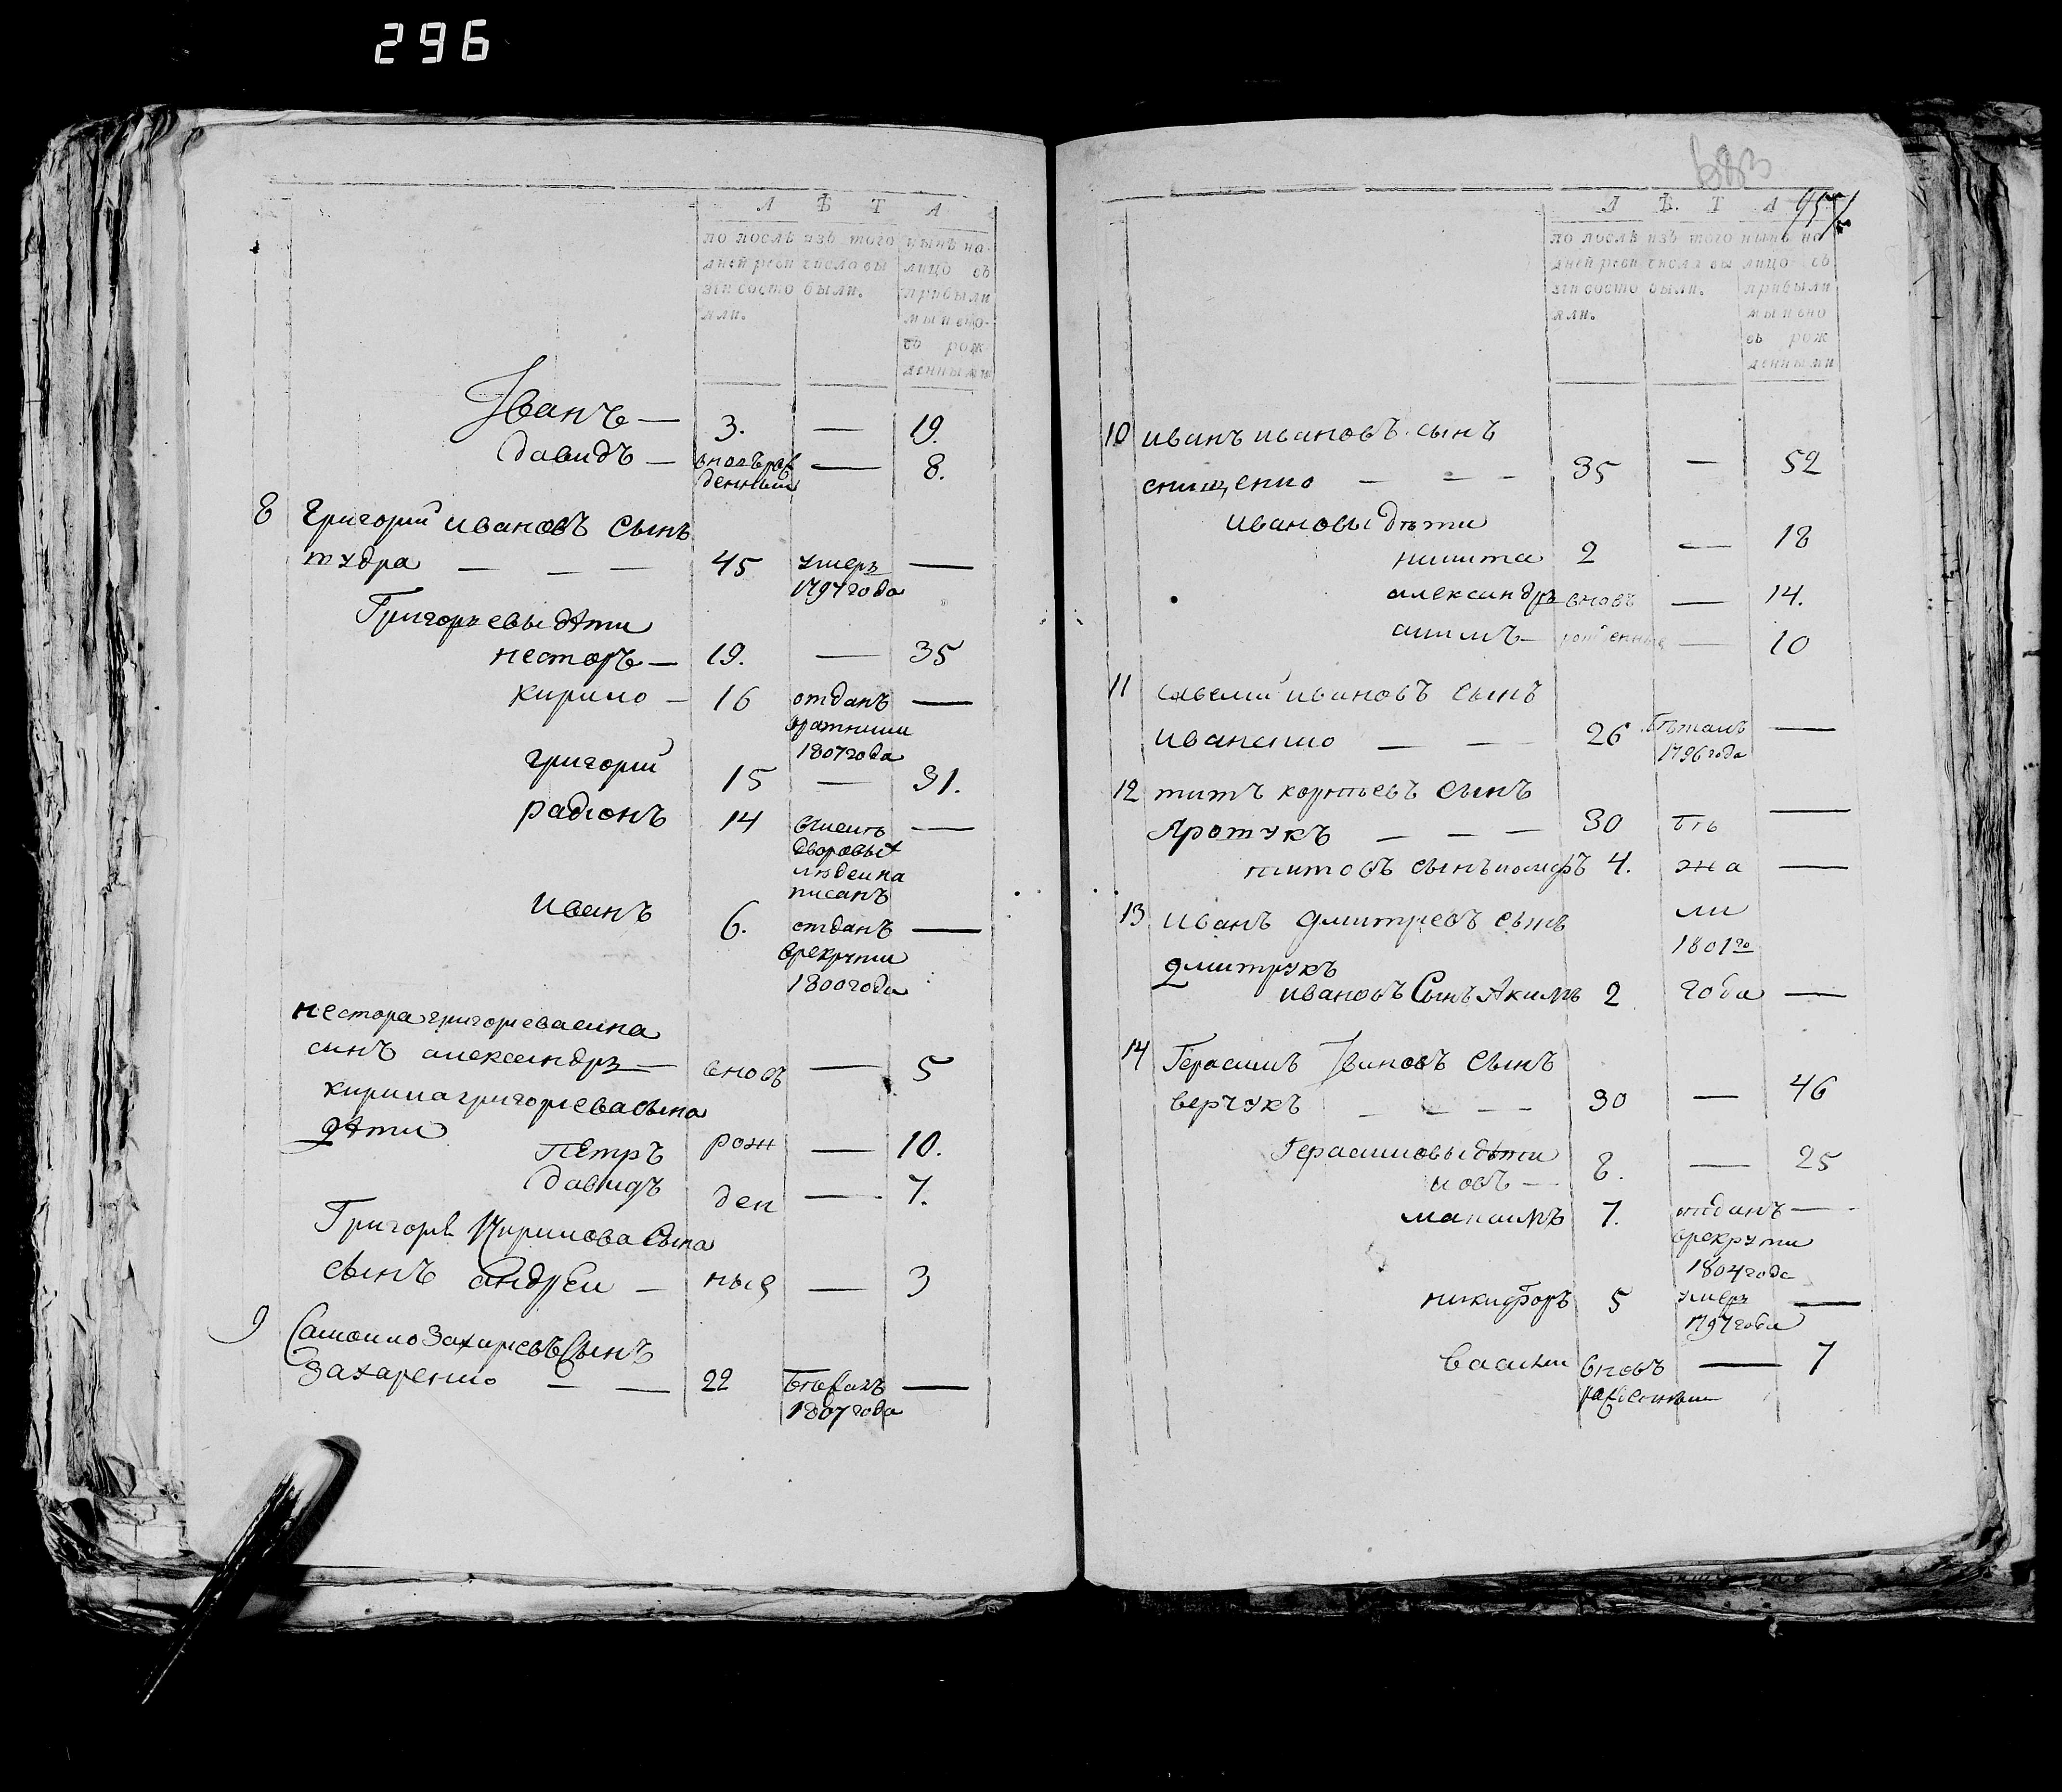 296
Л Ѣ Т А
по послѣ
дней реви
зіи состо
яли.
изъ того
числа вы
были.
нынѣ на
лицо съ
прибыли
мы и вно
въ рож
денными
Іванъ — 3. — 19.
давидъ — вновъ рож — 8.
денныи
8 Григорий ивановъ сынъ
тудра — — — 45 умеръ —
1797 года
Григорьевы дѣти
несторъ — 19. — 35
кирило — 16 отданъ —
вратники
1807 года
григорий 15 — 31.
радіонъ 14 —
дворовыѣ
людеи на
писанъ
иванъ 6. отданъ —
врекруты
1800 года
нестора григорьева сина
синъ александръ — вновъ — 5
кирила григорьева сына
дѣти
петръ рож — 10.
давидъ ден — 7.
Григорія Кирилова Сына
сынъ андреи — ныя — 3
9 Самоило Захаревъ Сынъ
Захаренко — — 22 бѣжалъ —
1807 года
957
Л Ѣ Т А
по послѣ
дней реви
зіи состо
яли.
изъ того
числа вы
были.
нынѣ на
лицо съ
прибыли
мы и вно
въ рож
денными
10 иванъ ивановъ сынъ
снищенко — — — 35 — 52
ивановы дѣти
никита 2 — 18
александръ вновъ — 14.
акимъ — рожденные — 10
11 савелий ивановъ сынъ
иваненко — — 26 бѣжалъ —
1796 года
12 титъ корнѣевъ сынъ
Яротукъ — — — 30 бѣ —
титовъ сынъ иосифъ 4. жа —
13 иванъ дмитревъ сынъ ли
1801го
дмитрукъ
ивановъ Сынъ Акимъ 2 года —
14 Герасимъ Івановъ Сынъ
верчукъ — — — 30 — 46
Герасимовы дѣти
иовъ — 8. — 25
максимъ 7. отданъ —
врекруты
1804 года
никифоръ 5 умеръ —
1797 года
василии вновъ — 7
рожденныи